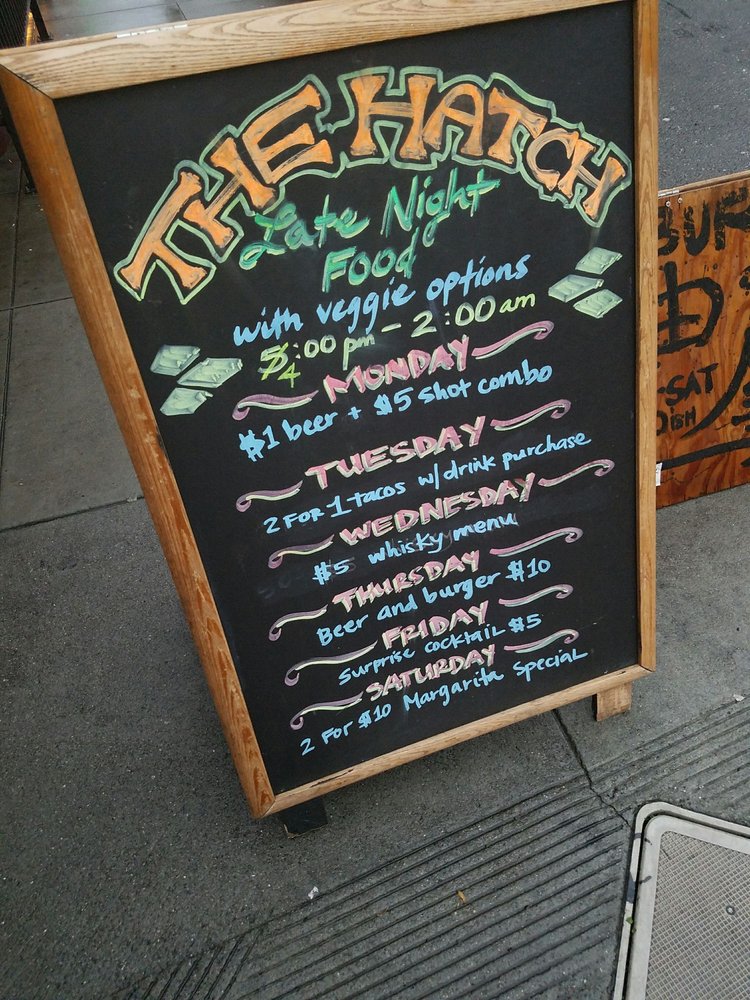 THE HATCH
Late Night
Food
with veggie options
4:00 pm - 2:00 am
MONDAY
$1 beer + $5 shot combo
TUESDAY
2 FOR 1 tacos w/drink purchase
WEDNESDAY
$5 whisky menu
THURSDAY
Beer and burger $10
FRIDAY
Surprise cocktail $5
SATURDAY
2 FOR $10 Margarita Special
BUR
D
-SAT